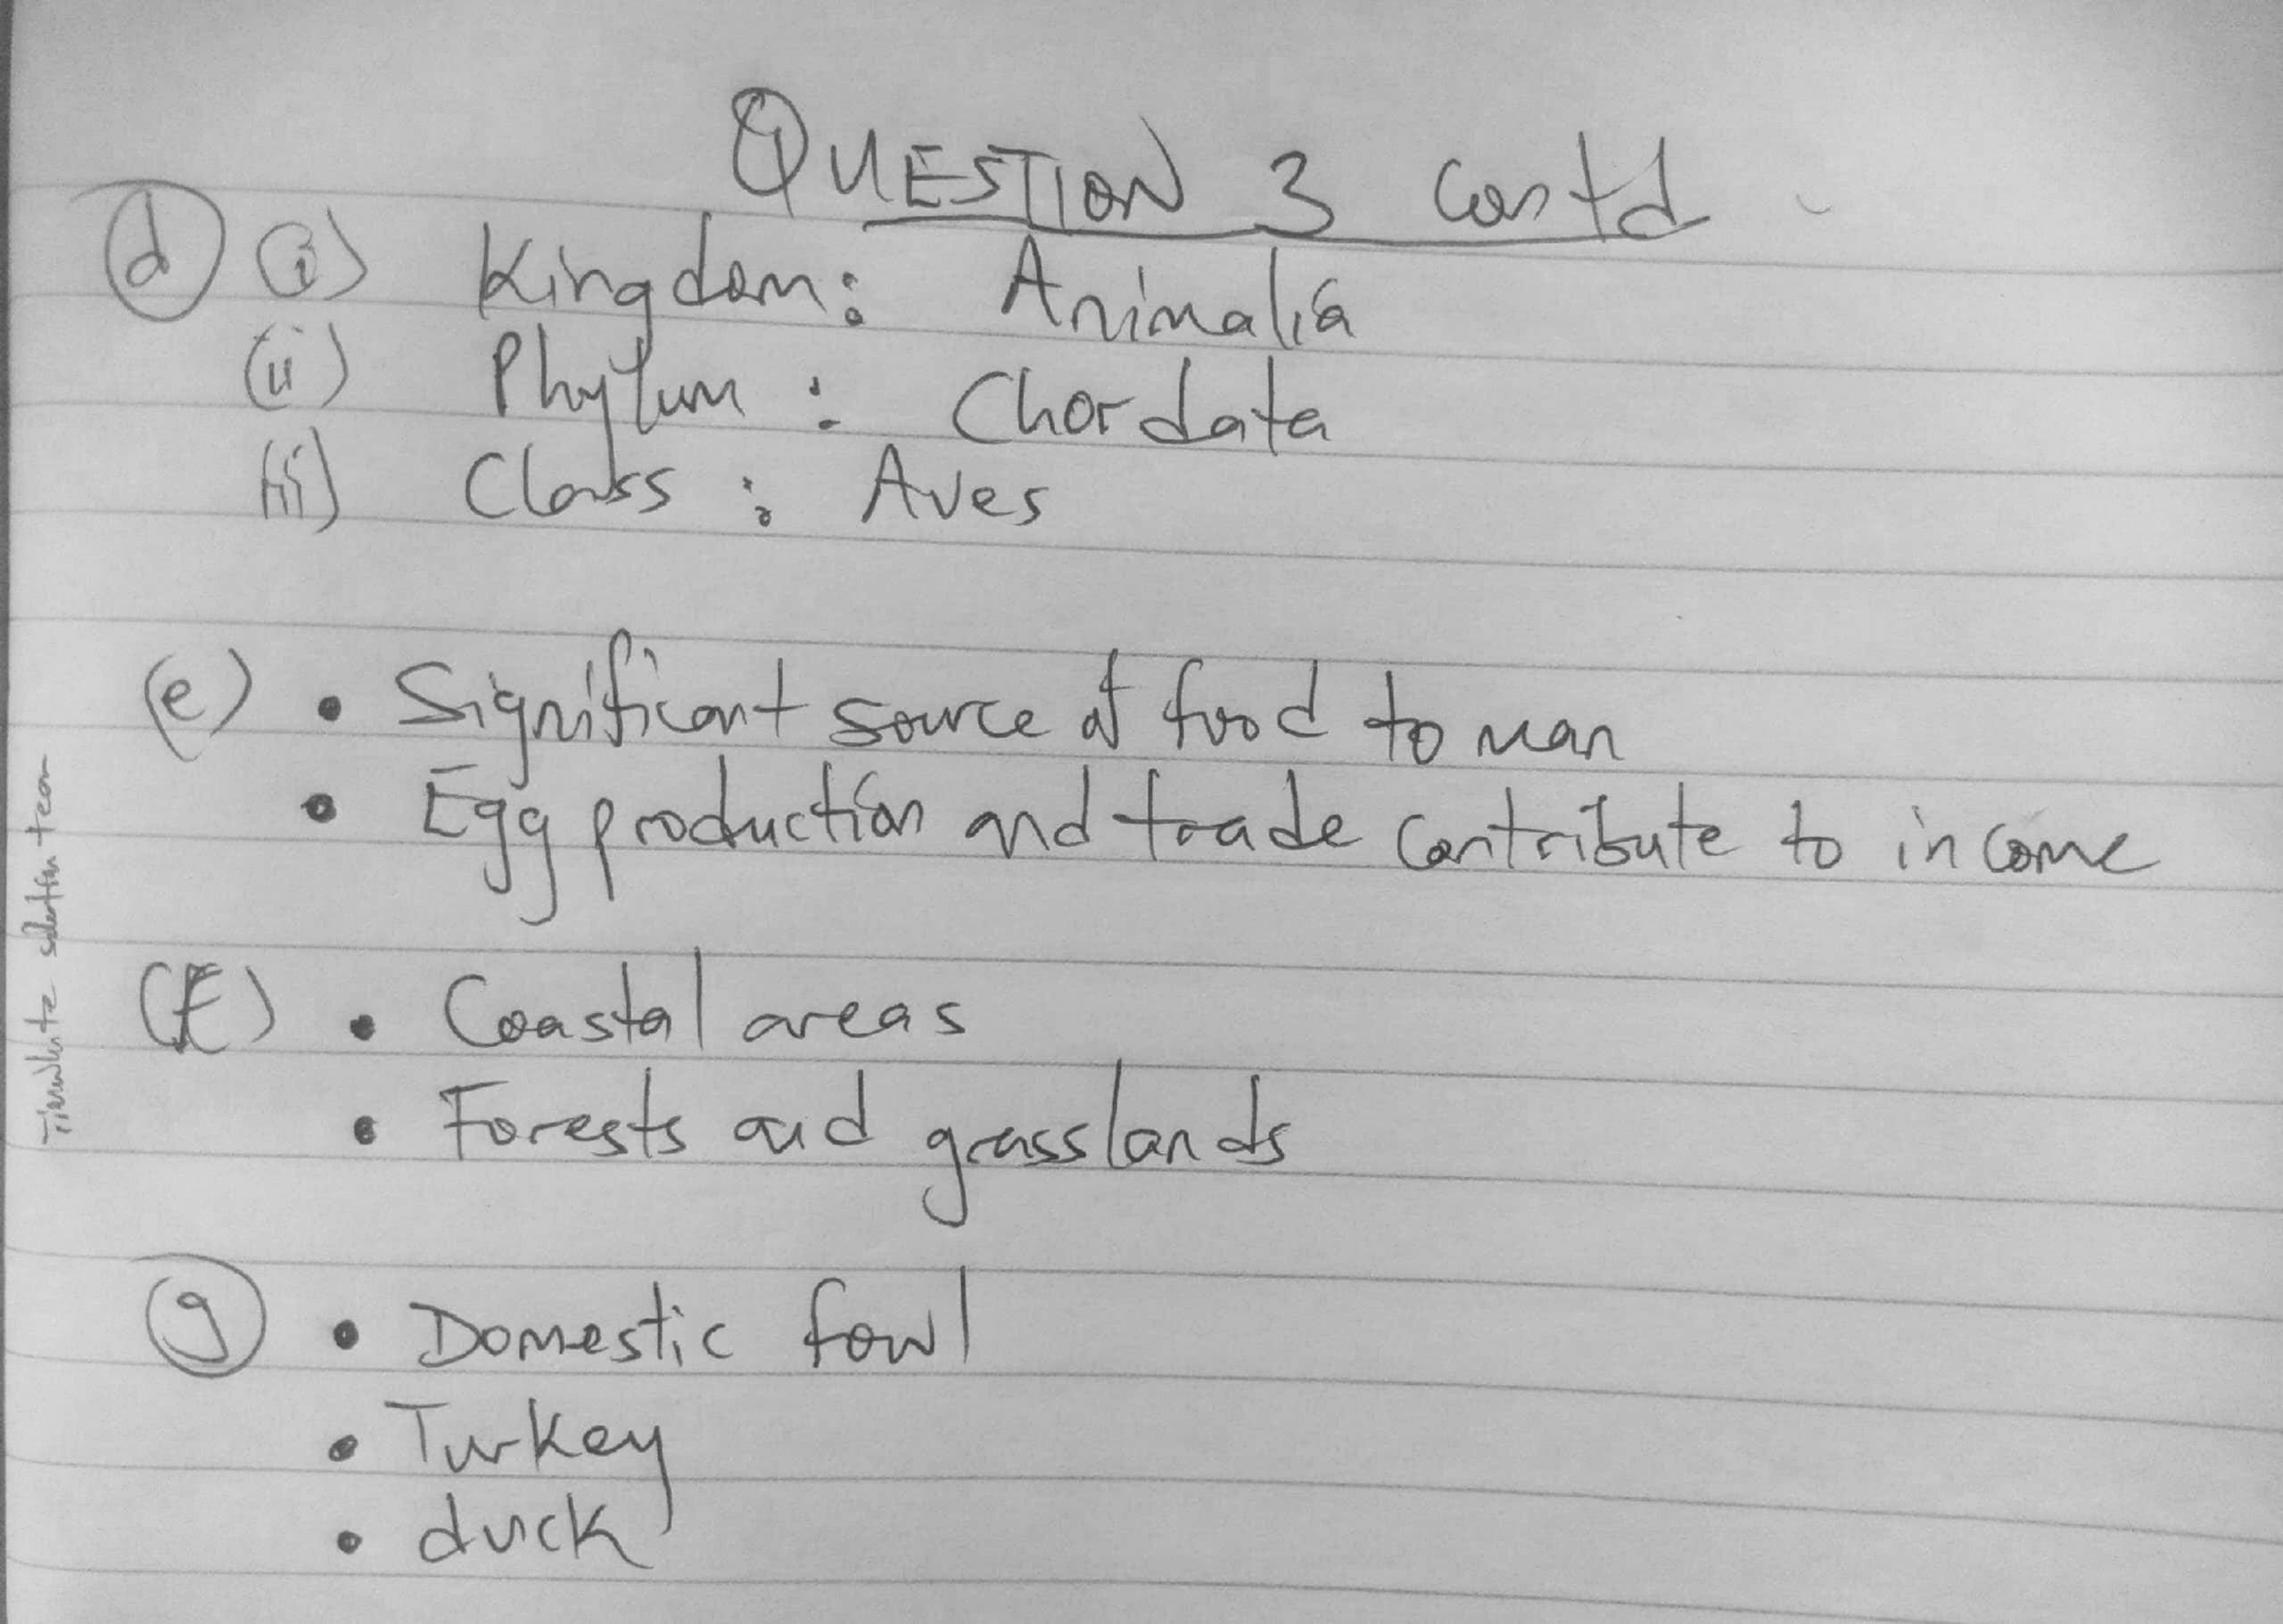 QUESTION 3 Contd
(d) (i) Kingdom: Animalia
(ii) Phylum : Chordata
(iii) Class : Aves
(e) • Significant source of food to man
• Egg production and trade contribute to income
(f) • Coastal areas
• Forests and grasslands
(g) • Domestic fowl
• Turkey
• duck
team